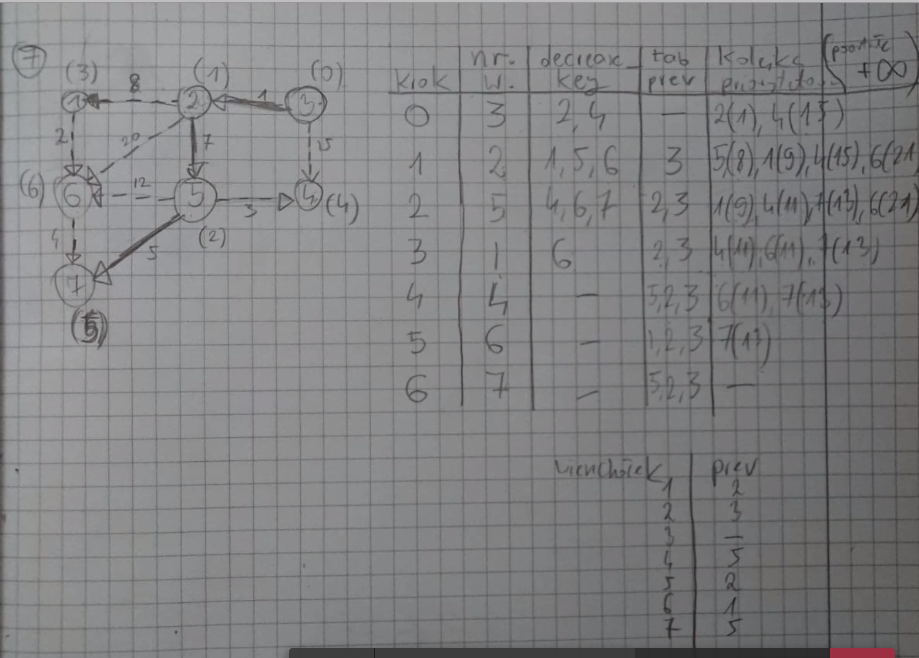 7
(3) 8 (1) (0)
1 2 1 3
2 20 7 15
(6) 6 12 5 3 4 (4)
4 5 (2)
7
krok nr. w. decrease key tab prev Kolejka prioryteto. +∞
0 3 2,4 — 2(1), 4(15)
1 2 1,5,6 3 5(8), 1(9), 4(15), 6(21
2 5 4,6,7 2,3 1(9), 4(11), 7(13), 6(21)
3 1 6 2,3 4(11), 6(11), 7(13)
4 4 — 5,2,3 6(11), 7(13)
5 6 — 1,2,3 7(13)
6 7 — 5,2,3 —
wierzchołek prev
1 2
2 3
3 —
4 5
5 2
6 1
7 5